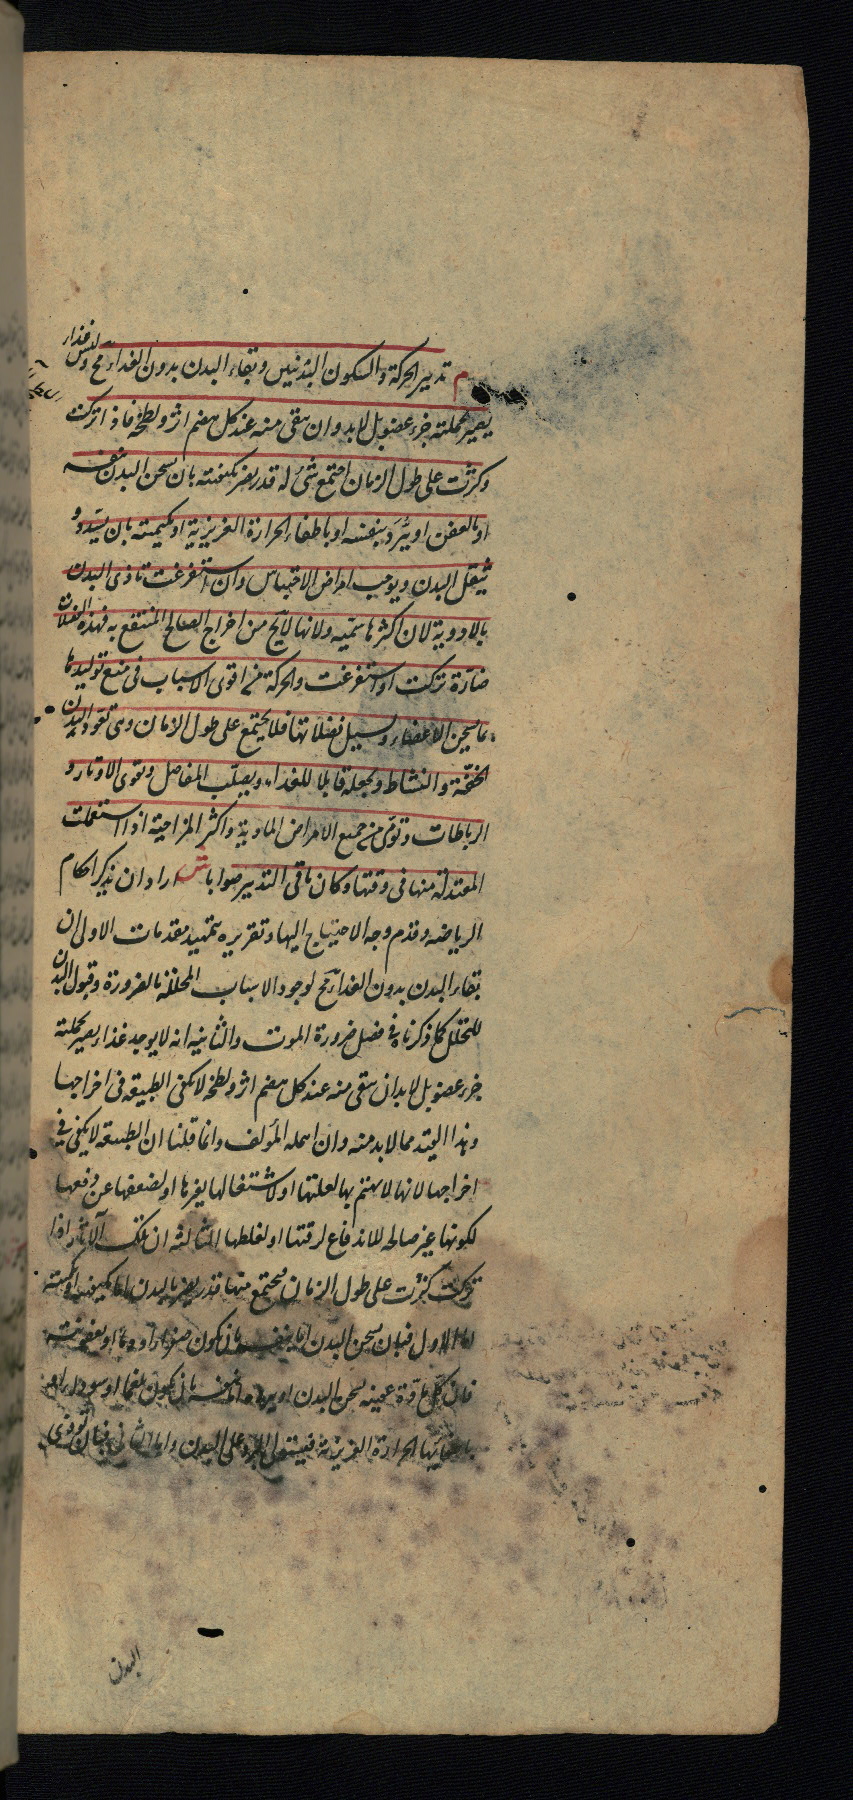 م تدبير الحركة والسكون البدنيين وبقاء البدن بدون الغذاء مح وليس غذاء
يصير بجملته جزء عضو بل لا بد وان يبقى منه عند كل هضم اثر ولطخة فاذا تركت
وكثرت على طول الزمان اجتمع شئ له قدر يضر بكيفيته بان يسخن البدن بنفسه
او بالعفن او يبرد بنفسه او باطفاء الحرارة الغريزية او بكميته بان يسدد و
يثقل البدن ويوجب امراض الاحتباس وان استفرغت تاذى البدن
بالادوية لان اكثرها سمية ولانها لا يخ من اخراج الصالح المنتفع به فهذه الفضلات
ضارة تركت او استفرغت والحركة من اقوى الاسباب فى منع توليدها
بما يسخن الاعضاء ويسيل فضلاتها فلا يجتمع على طول الزمان وهى تعود البدن
الخفة والنشاط ويجعله قابلا للغذاء ويصلب المفاصل ويقوى الاوتار و
الرباطات وتؤمن من جميع الامراض المادية واكثر المزاجية اذا استعملت
المعتدلة منها فى وقتها وكان باقى التدبير صوابا ش اراد ان يذكر احكام
الرياضه وقدم وجه الاحتياج اليها وتقريره بتمهيد مقدمات الاولى ان
بقاء البدن بدون الغذاء مح لوجود الاسباب المحللة بالضرورة وقبول البدن
للتحلل كما ذكرناه فى فصل ضرورة الموت والثانيه انه لا يوجد غذاء يصير بجملته
جزء عضو بل لا بد ان يبقى منه عند كل هضم اثر ولطخة لا يكفى الطبيعه فى اخراجها
وهذا القيد مما لا بد منه وان اهمله المؤلف وانما قلنا ان الطبيعه لا يكفى فى
اخراجها لانها لا يهتم بها لقلتها او لاشتغالها بغيرها او لضعفها عن دفعها
لكونها غير صالحه للاندفاع لرقتها او لغلظها الثالثه ان تلك الآثار اذا
تركت كثرت على طول الزمان فيجتمع منها قدر يضر بالبدن اما بكيفيته او بكميته
اما الاول فبان يسخن البدن اما بنفسه بان يكون صفراء او دما او بعفونته
فان كل مادة عفنه يسخن البدن او يبرده اما بنفسه بان يكون بلغما او سوداء او
باطفائها الحرارة الغريزية فيستولى البرد على البدن واما الثانى فبان
البدن